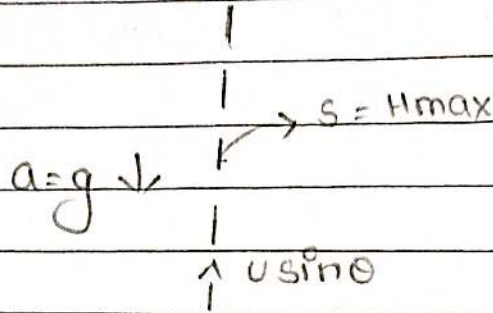 S = Hmax
a = g ↓
↑ usinθ